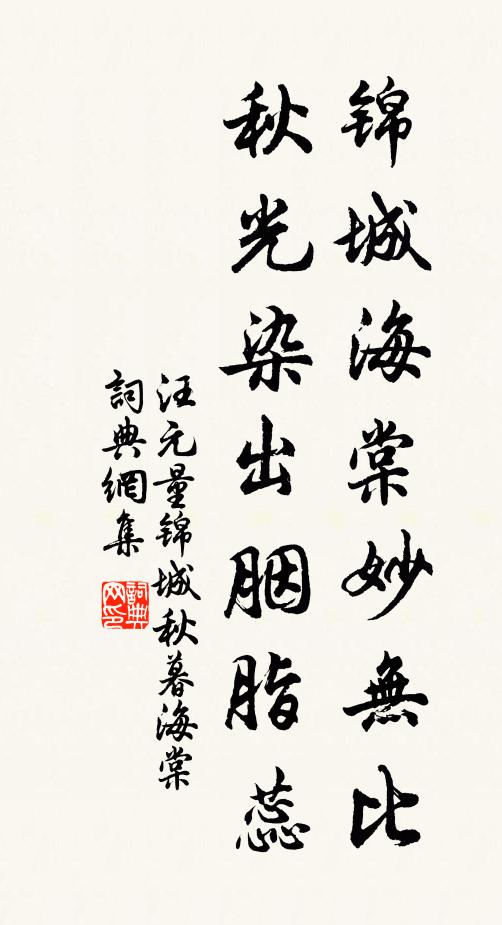 锦城海棠妙無比
秋光染出胭脂蕊
汪元量锦城秋暮海棠
詞典網集
詞典
网印